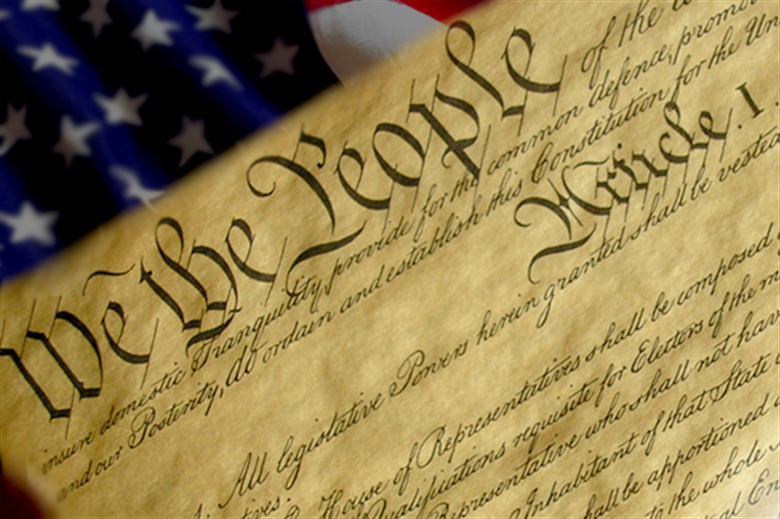 We the People of the
insure domestic Tranquility, provide for the common defence, promo
and our Posterity, do ordain and establish this Constitution for the Un
Article. I.
1. All legislative Powers herein granted shall be vested
tives.
House of Representatives shall be composed
Qualifications requisite for Electors of the m
Representative who shall not hav
Inhabitant of that State
hall be apportioned
to the whole